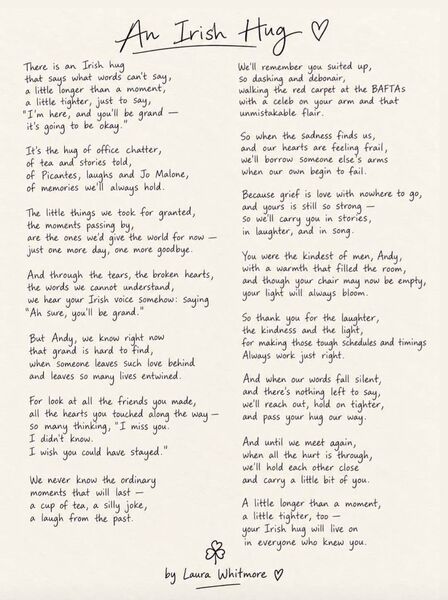 An Irish Hug ♡
There is an Irish hug
that says what words can't say,
a little longer than a moment,
a little tighter, just to say,
"I'm here, and you'll be grand —
it's going to be okay."
It's the hug of office chatter,
of tea and stories told,
of Picantes, laughs and Jo Malone,
of memories we'll always hold.
The little things we took for granted,
the moments passing by,
are the ones we'd give the world for now —
just one more day, one more goodbye.
And through the tears, the broken hearts,
the words we cannot understand,
we hear your Irish voice somehow: saying
"Ah sure, you'll be grand."
But Andy, we know right now
that grand is hard to find,
when someone leaves such love behind
and leaves so many lives entwined.
For look at all the friends you made,
all the hearts you touched along the way —
so many thinking, "I miss you.
I didn't know.
I wish you could have stayed."
We never know the ordinary
moments that will last —
a cup of tea, a silly joke,
a laugh from the past.
We'll remember you suited up,
so dashing and debonair,
walking the red carpet at the BAFTAs
with a celeb on your arm and that
unmistakable flair.
So when the sadness finds us,
and our hearts are feeling frail,
we'll borrow someone else's arms
when our own begin to fail.
Because grief is love with nowhere to go,
and yours is still so strong —
so we'll carry you in stories,
in laughter, and in song.
You were the kindest of men, Andy,
with a warmth that filled the room,
and though your chair may now be empty,
your light will always bloom.
So thank you for the laughter,
the kindness and the light,
for making those tough schedules and timings
Always work just right.
And when our words fall silent,
and there's nothing left to say,
we'll reach out, hold on tighter,
and pass your hug our way.
And until we meet again,
when all the hurt is through,
we'll hold each other close
and carry a little bit of you.
A little longer than a moment,
a little tighter, too —
your Irish hug will live on
in everyone who knew you.
by Laura Whitmore ♡